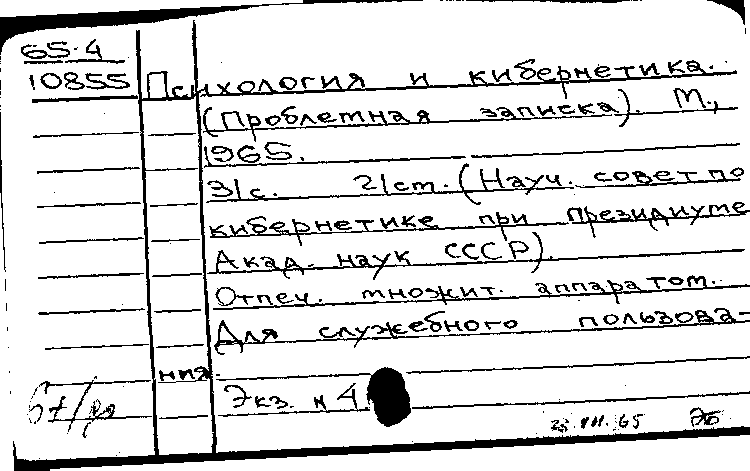 65-4
10855 Психология и кибернетика.
(Проблемная записка). М.,
1965.
31с. 21см. (Науч. совет по
кибернетике при Президиуме
Акад. наук СССР).
Отпеч. множит. аппаратом.
Для служебного пользова-
ния.
Экз. н 4
23.VII.65